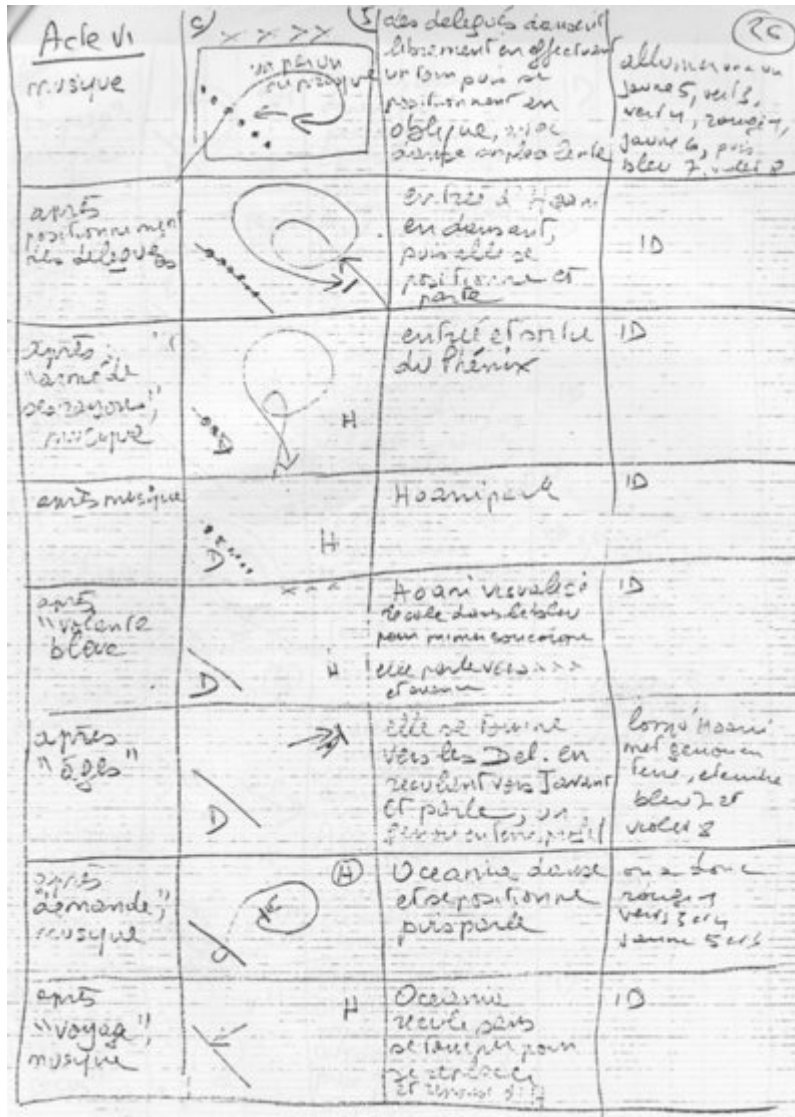 Acte VI
musique
S
26
des délégués dansent
librement en effectuant
un tour puis se
positionnent en
oblique, 
allumer
jaune 5, vert 3,
vert 4, rouge 1,
jaune 6, puis
bleu 7, violet 8
un par un
après
positionnement
des délégués
entrée d'Hoani
en dansant,
puis elle se
positionne et
parle
ID
après
"armé de
ses rayons",
musique
D
H
entrée et sortie
du Phénix
ID
après musique
D
H
Hoani parle
ID
après
"volante
bleue"
D
H
Hoani
pour mimer
elle parle vers
et avance
ID
après
"âges"
D
elle se tourne
vers les Del. en
reculant vers l'avant
et parle, un
genou en terre,
lorsq' Hoani
met genou en
terre, éteindre
bleu 7 et
violet 8
après
"demande",
musique
H
Oceania danse
et se positionne
puis parle
on a donc
rouge 1
vert 3 et 4
jaune 5 et 6
après
"voyage",
musique
H
Oceania
recule sans
se tourner pour
se replacer
ID